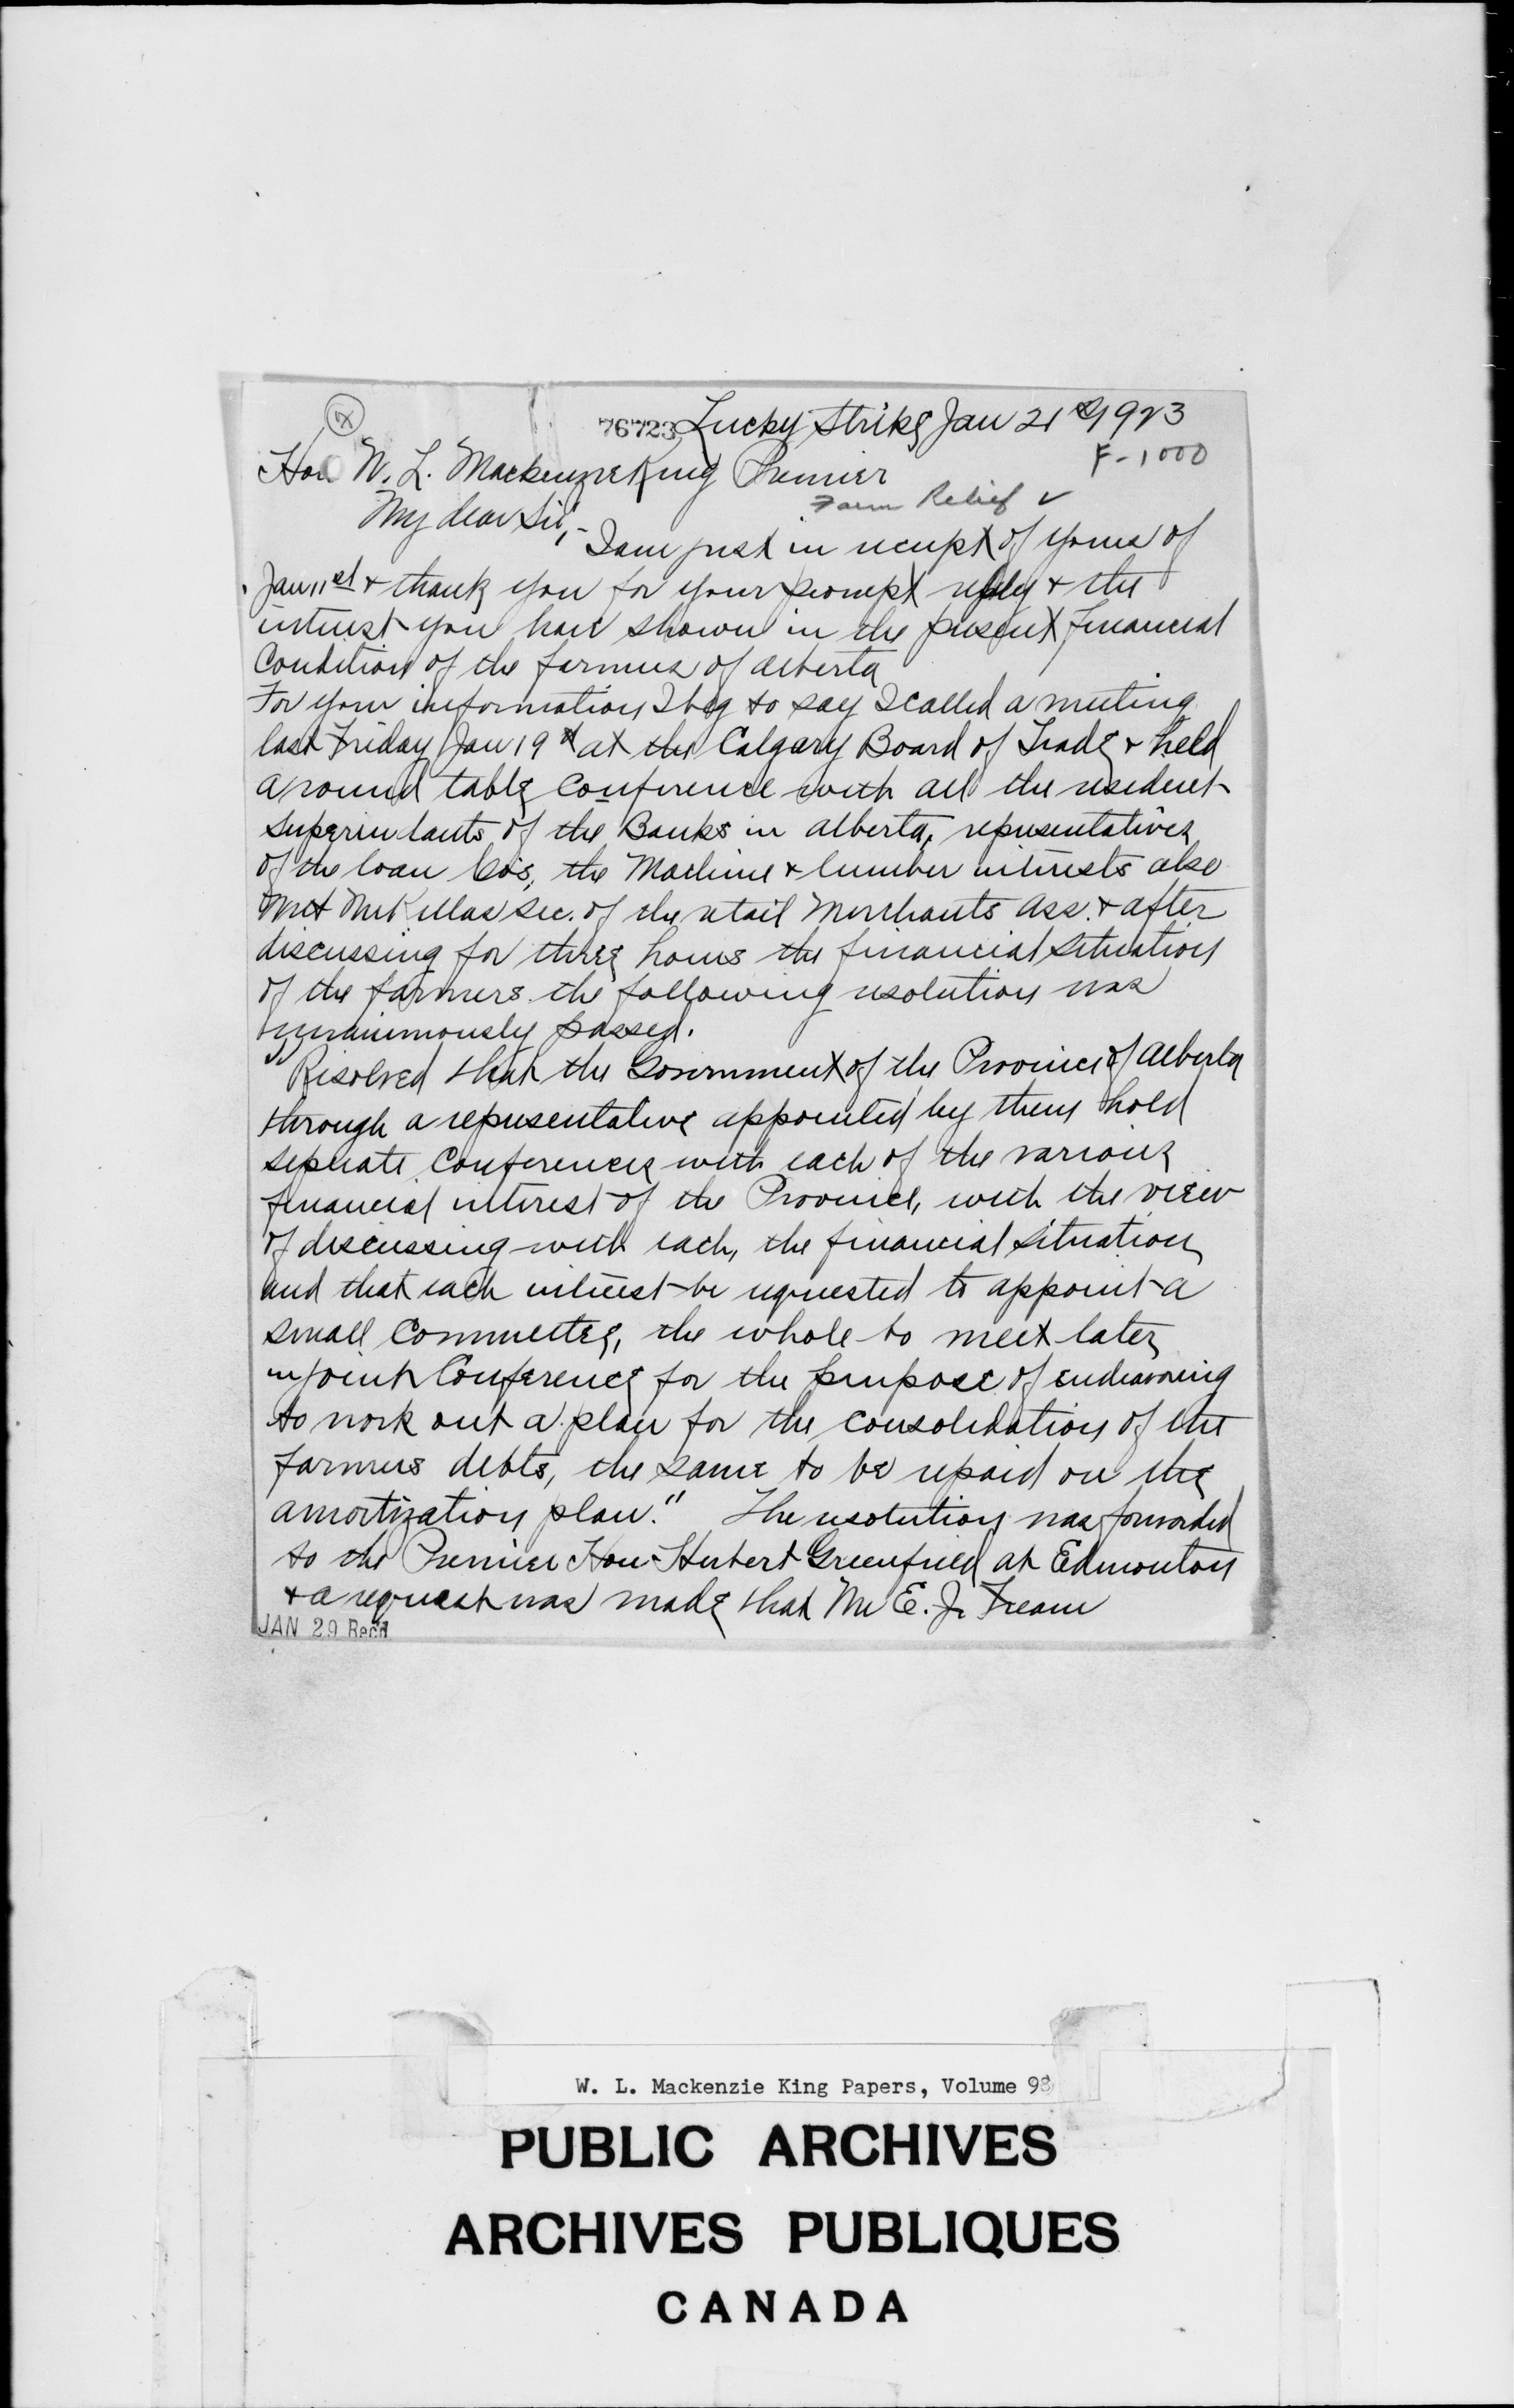 76723 Lucky Strike Jan 21st 1923
F-1000
Hon W. L. Mackenzie King Premier
Farm Relief ✓
My dear Sir,-
I am just in receipt of yours of
Jan 11st + thank you for your prompt reply + the
interest you have shown in the present financial
Condition of the farmers of Alberta
For your information I beg to say I called a meeting
last Friday Jan 19th at the Calgary Board of Trade + held
a round table conference with all the resident
superintants of the Banks in Alberta, representatives
of the loan Co's, the Machine + lumber interests also
sec. of the retail Merchants Ass. + after
discussing for three hours the financial situation
of the farmers the following resolution was
unanimously passed.
"Resolved that the Government of the Province of Alberta
through a representative appointed by them hold
seperate Conferences with each of the various
financial interest of the Province, with the view
of discussing with each, the financial situation
and that each interest be requested to appoint a
small Committee, the whole to meet later
in joint Conference for the purpose of endeavoring
to work out a plan for the consolidation of the
farmers debts, the same to be repaid on the
amortization plan." The resolution was forwarded
to the Premier Hon Herbert Greenfield at Edmonton
+ a request was made that Mr E. J. Fream
JAN 29 Rec'd
W. L. Mackenzie King Papers, Volume 98
PUBLIC ARCHIVES
ARCHIVES PUBLIQUES
CANADA